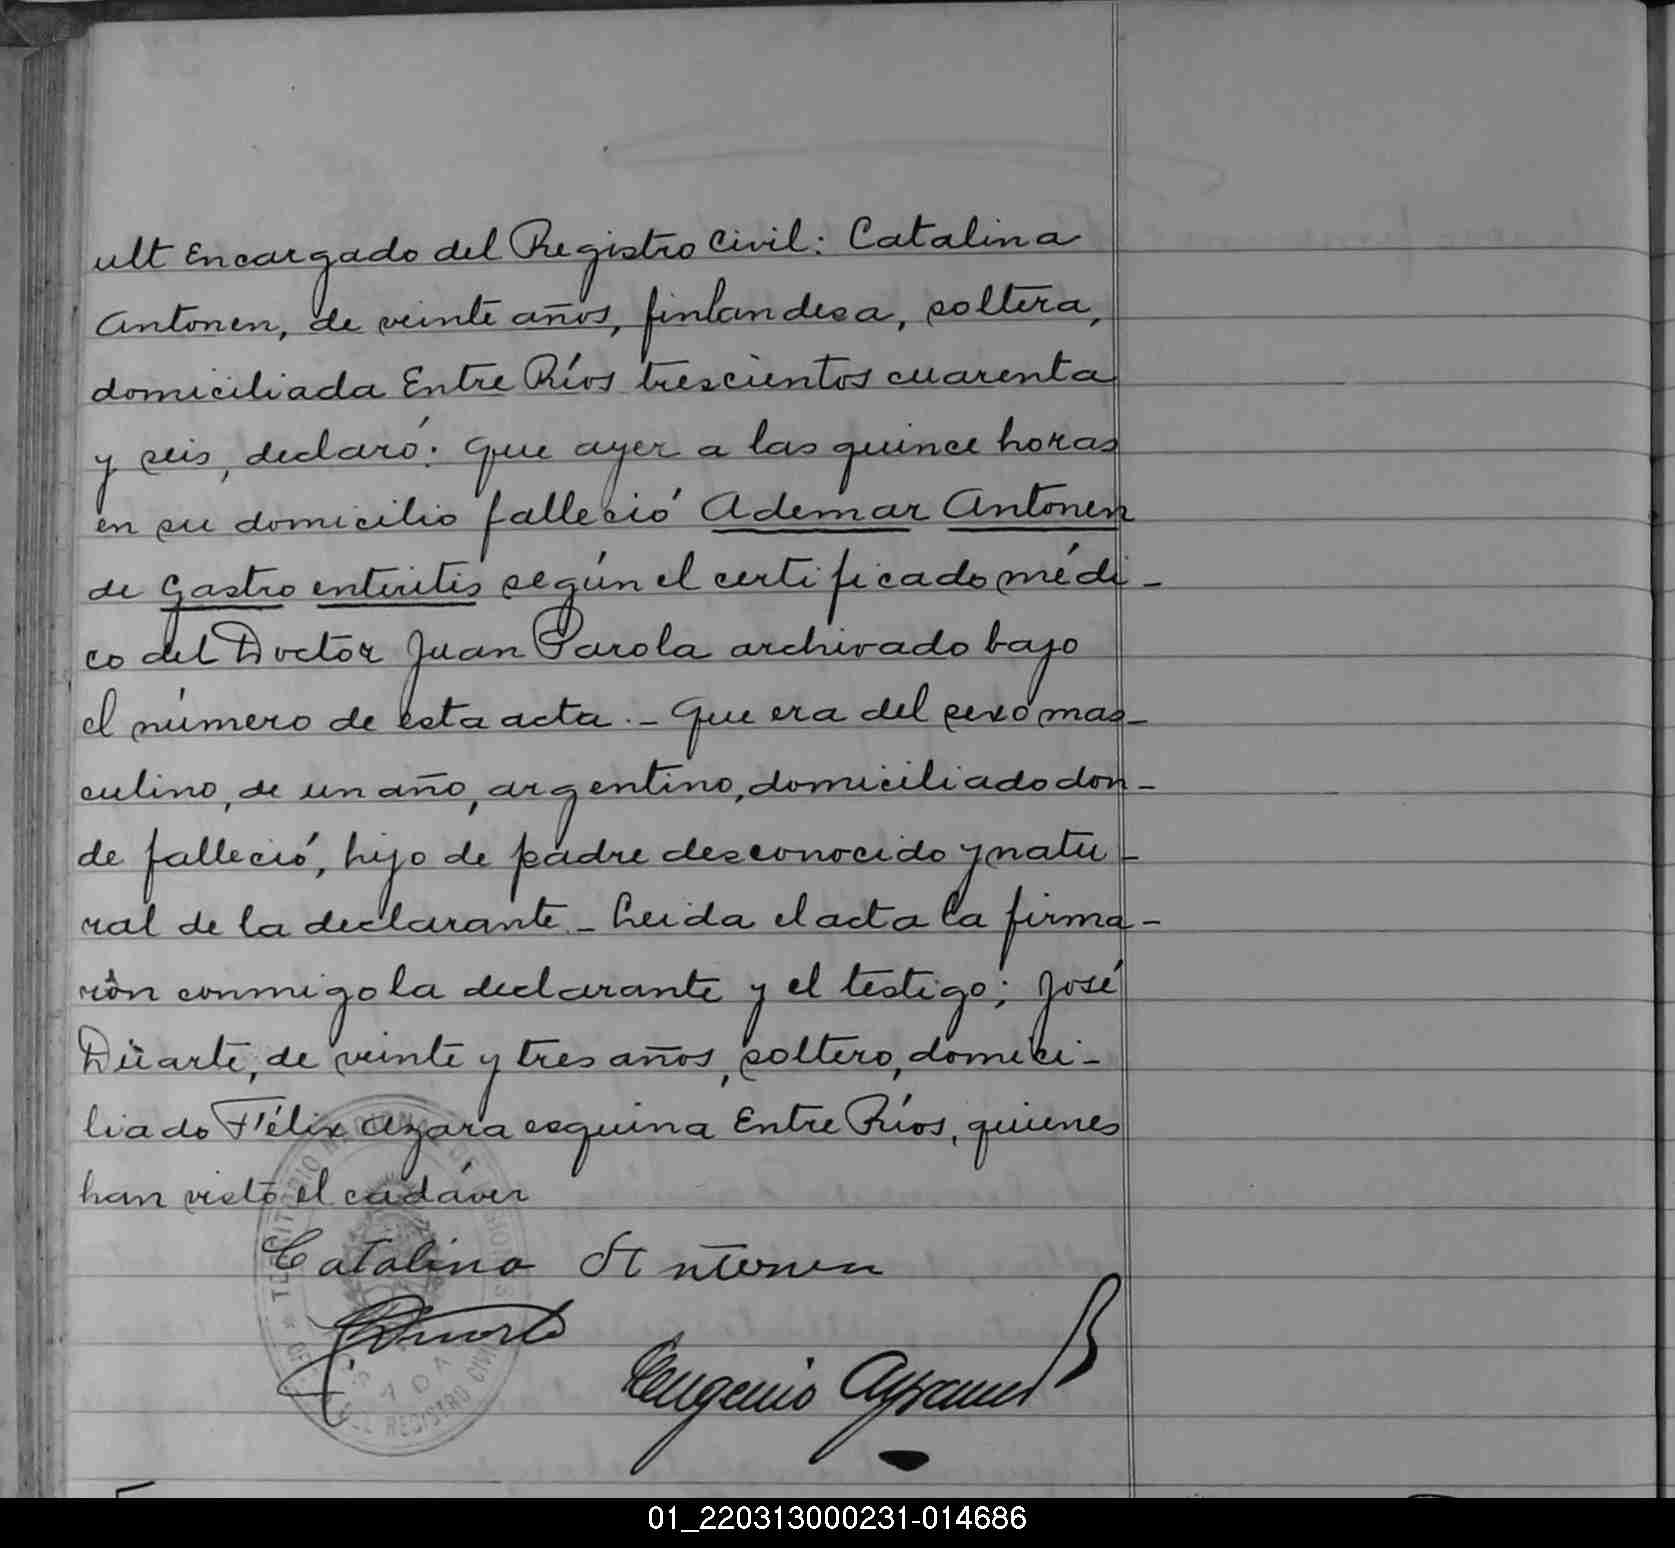 ult Encargado del Registro Civil: Catalina
Antonen, de veinte años, finlandesa, soltera,
domiciliada Entre Ríos trescientos cuarenta
y seis, declaró: Que ayer a las quince horas
en su domicilio falleció Ademar Antonen
de Gastro enteritis según el certificado médi-
co del Doctor Juan Parola archivado bajo
el número de esta acta.- Que era del sexo mas-
culino, de un año, argentino, domiciliado don-
de falleció, hijo de padre desconocido y natu-
ral de la declarante - Leida el acta la firma-
rón conmigo la declarante y el testigo; José
Düarte, de veinte y tres años, soltero, domici-
liado Félix Azara esquina Entre Ríos, quienes
han visto el cadáver
Catalina Antonen
JDuarte
Eugenio
TERRITORIO NACIONAL DE MISIONES
DEL REGISTRO CIVIL
01_220313000231-014686